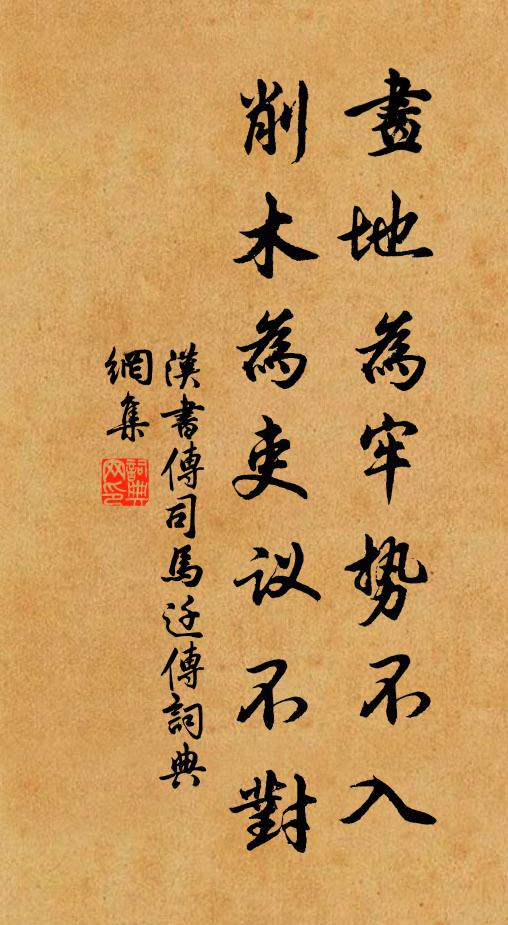 畫地為牢势不入
削木為吏议不對
漢書傳司馬迁傳詞典
網集
詞典
网印